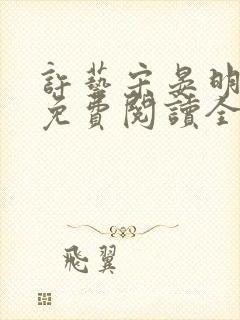 許藝宋晏明
免費閱讀全
飛翼